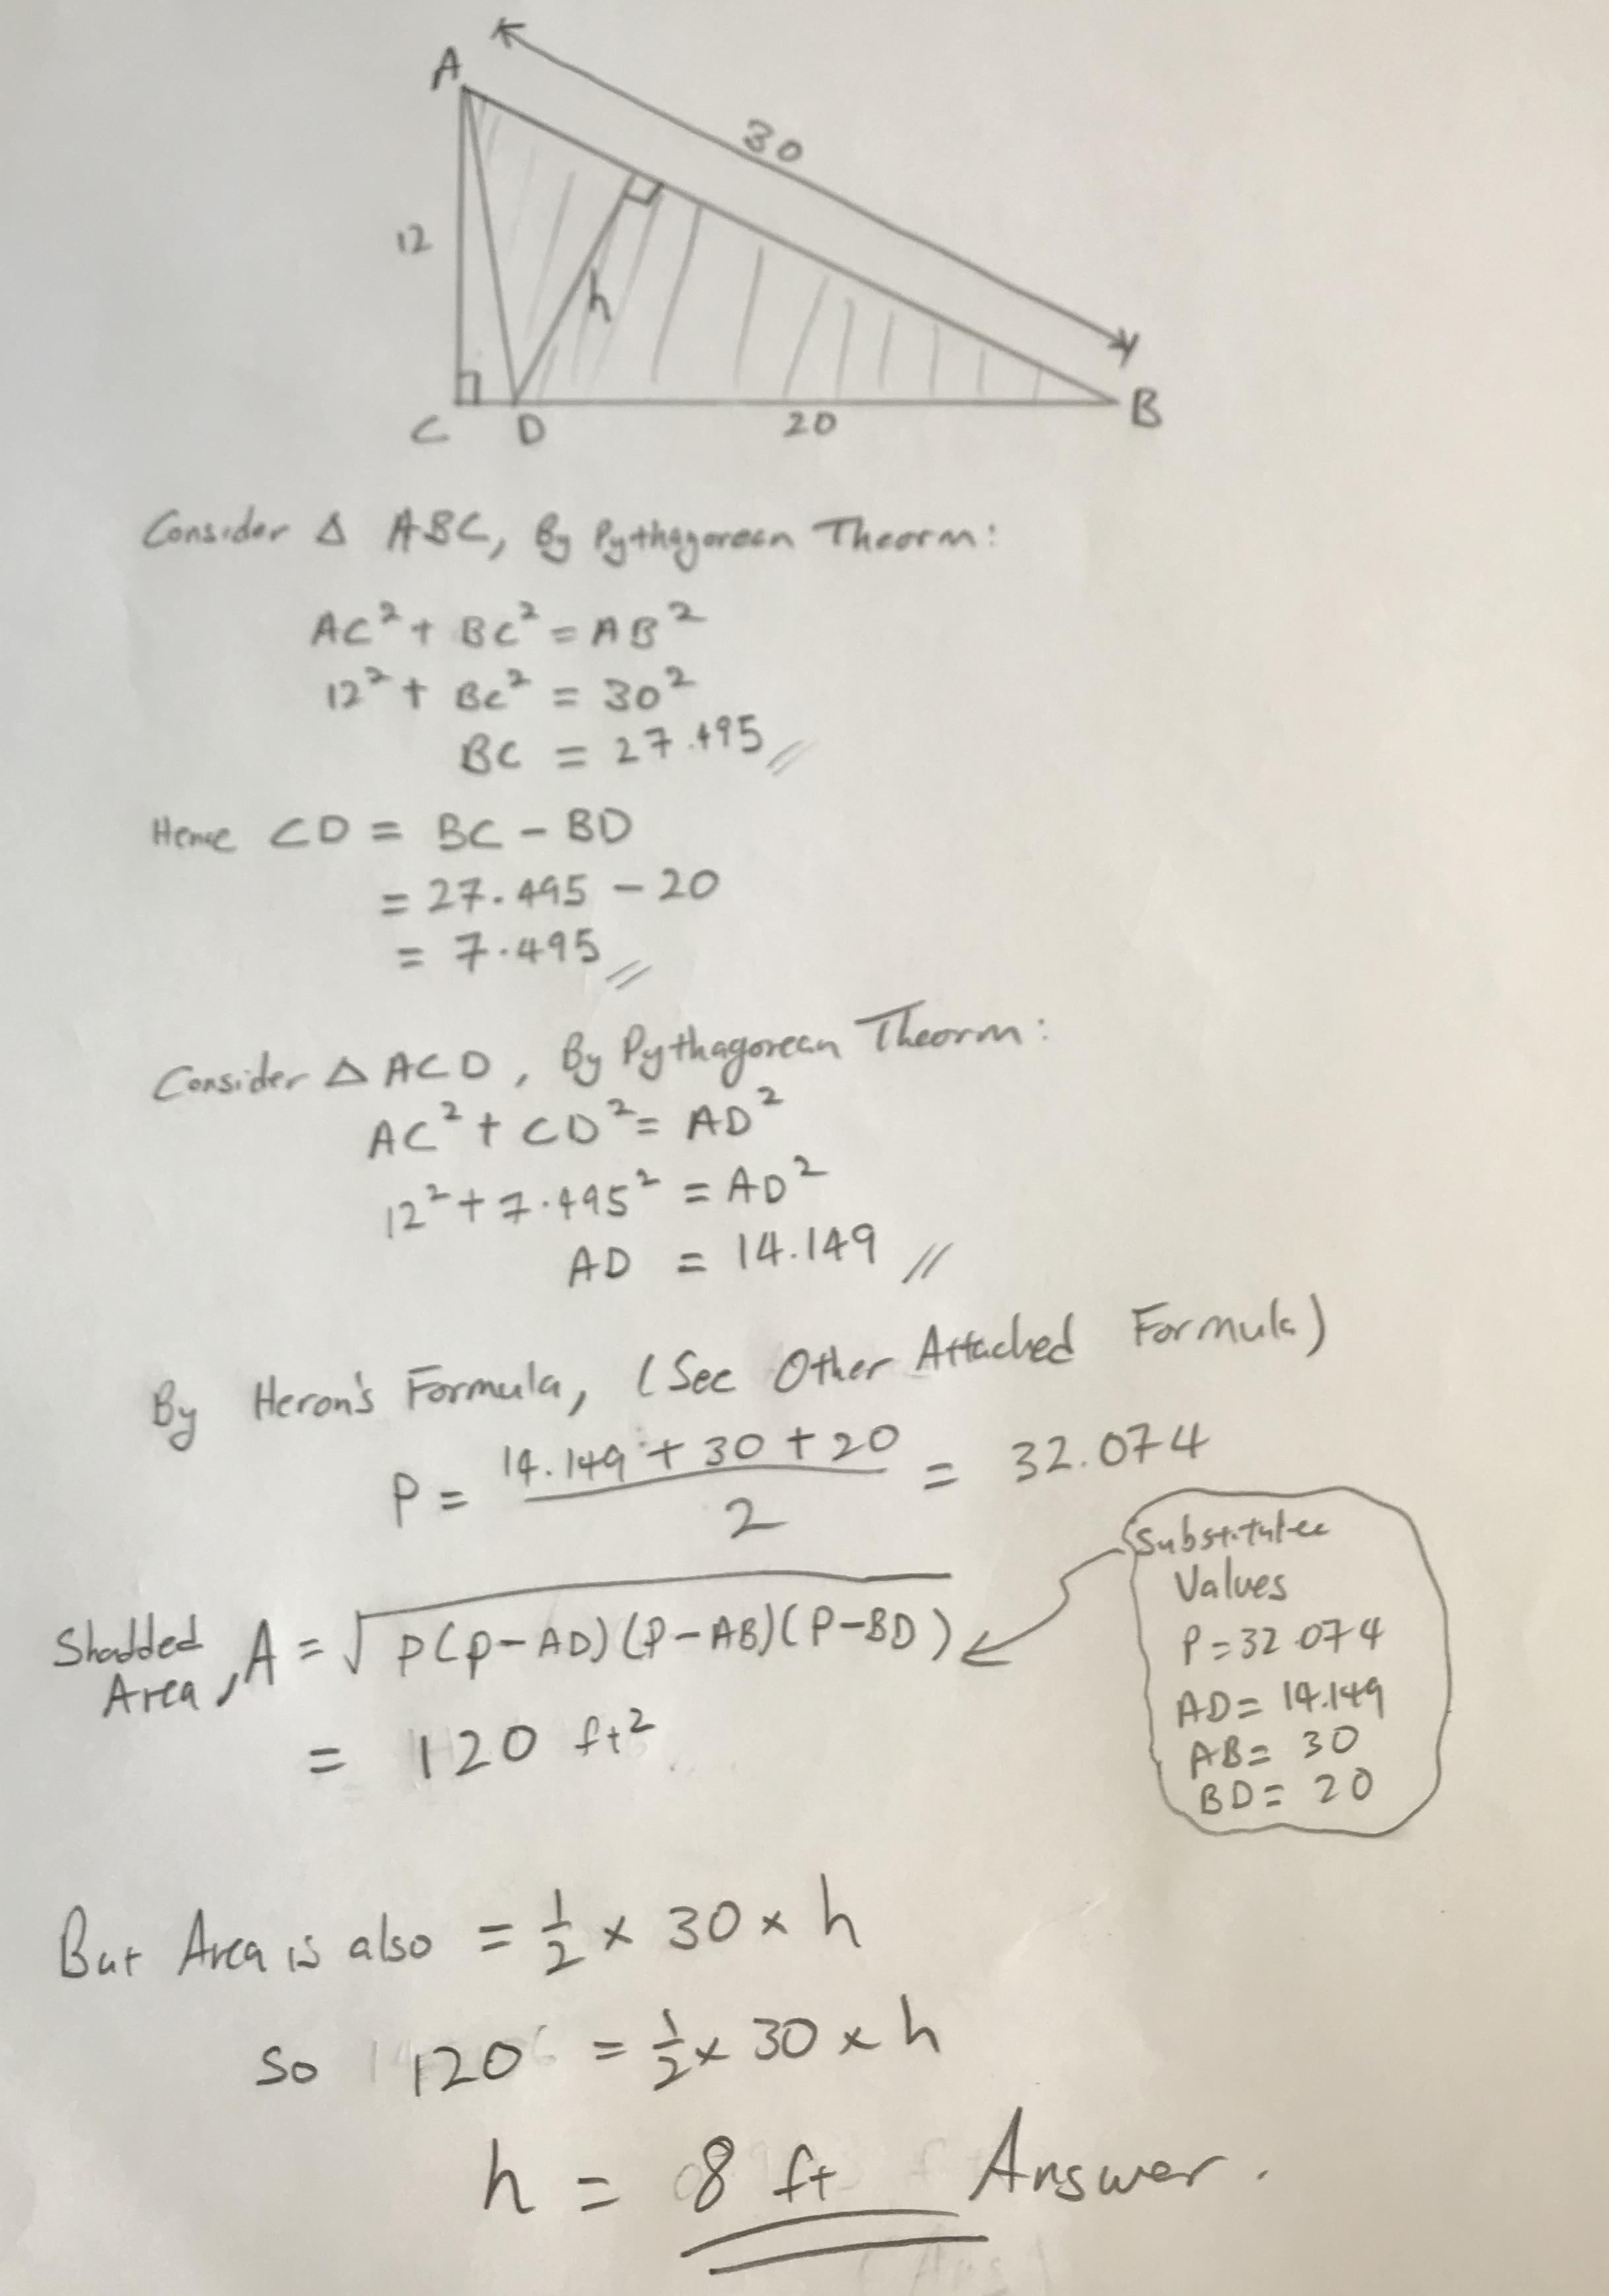 A
30
12
h
C D 20 B
Consider Δ ABC, By Pythagorean Theorm:
AC² + BC² = AB²
12² + BC² = 30²
BC = 27.495
Hence CD = BC - BD
= 27.495 - 20
= 7.495
Consider Δ ACD, By Pythagorean Theorm:
AC² + CD² = AD²
12² + 7.495² = AD²
AD = 14.149
By Heron's Formula, (See Other Attached Formula)
P = (14.149 + 30 + 20)/2 = 32.074
Shadded Area, A = √P(P-AD)(P-AB)(P-BD)
= 120 ft²
Substitutee
Values
P = 32.074
AD = 14.149
AB = 30
BD = 20
But Area is also = 1/2 × 30 × h
So 120 = 1/2 × 30 × h
h = 8 ft Answer.